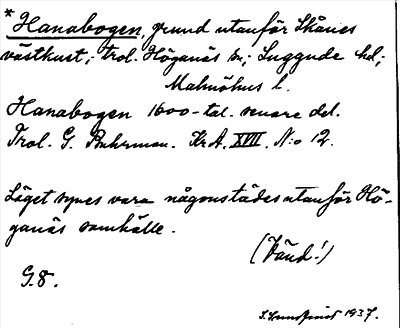 * Hanabogen, grund utanför Skånes
västkust, trol. Höganäs sn; Luggude hd;
Malmöhus l.
Hanabogen 1600-tal. senare del.
Trol. G. Buhrman. Kr.A. XVII. N:o 12.
Läget synes vara någonstädes utanför Hö-
ganäs samhälle.
(Vänd!)
G.8.
1937.